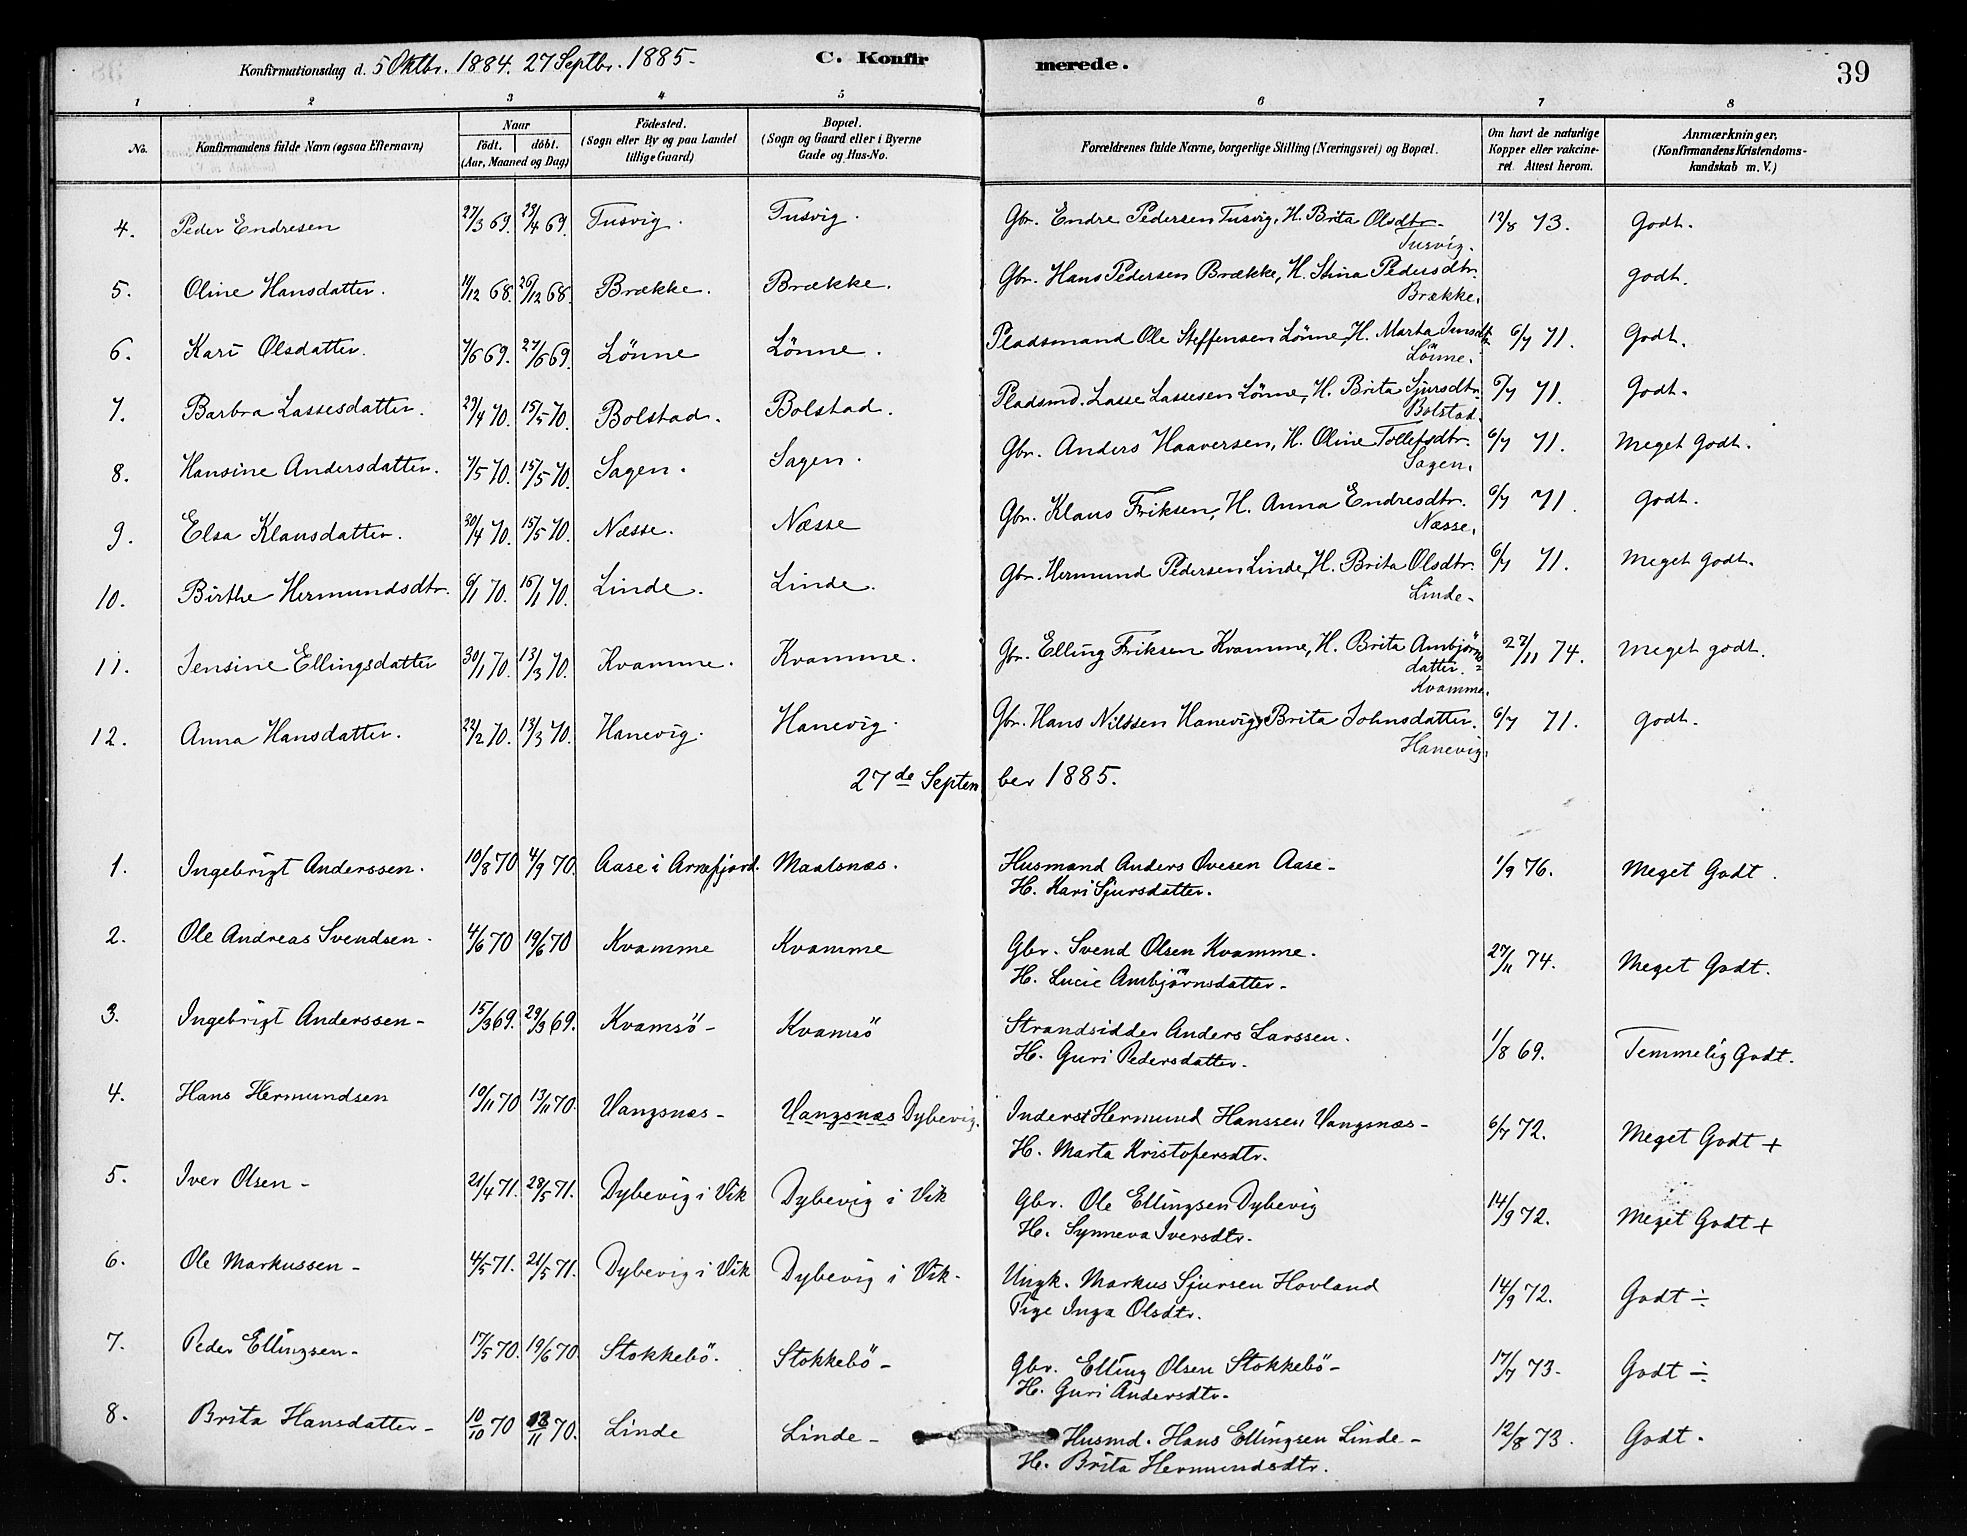 Konfirmationsdag d. 5 Oktbr. 1884. 27 Septbr. 1885.
C. Konfirmerede.
39
1 2 3 4 5 6 7 8
No. | Konfirmandens fulde Navn (ogsaa Efternavn) | Naar Födt. döbt. (Aar, Maaned og Dag) | Födested. (Sogn eller By og paa Landet tillige Gaard) | Bopæl. (Sogn og Gaard eller i Byerne Gade og Hus-No. | Forældrenes fulde Navne, borgerlige Stilling (Næringsvei) og Bopæl. | Om havt de naturlige Kopper eller vakcineret. Attest herom. | Anmærkninger, (Konfirmandens Kristendomskundskab m. V.)
4. Peder Endresen 27/3 69. 29/4 69. Tusvig. Tusvig. Gbr. Endre Pedersen Tusvig, H. Brita Olsdtr. 12/8 73. Godt.
Tusvig.
5. Oline Hansdatter. 11/12 68. 26/12 68. Brække. Brække. Gbr. Hans Pedersen Brække, H. Stina Pedersdtr. godt.
Brække.
6. Kari Olsdatter. 7/6 69. 27/6 69. Lönne Lönne. Pladsmand Ole Steffensen Lönne, H. Marta Jensdtr. 6/7 71. Godt.
Lönne.
7. Barbra Lassesdatter. 23/4 70. 15/5 70. Bolstad. Bolstad. Pladsmd. Lasse Lassesen Lönne, H. Brita Sjursdtr. 6/7 71. Godt.
Bolstad.
8. Hansine Andersdatter. 7/5 70. 15/5 70. Sagen. Sagen. Gbr. Anders Haaversen, H. Oline Tollefsdtr. 6/7 71. Meget Godt.
Sagen.
9. Elsa Klausdatter. 30/4 70. 15/5 70. Næsse. Næsse Gbr. Klaus Eriksen, H. Anna Endresdtr. 6/7 71. Godt.
Næsse.
10. Birthe Hermundsdtr. 6/1 70. 16/1 70. Linde. Linde. Gbr. Hermund Pedersen Linde, H. Brita Olsdtr. 6/7 71. Meget Godt.
Linde.
11. Jensine Ellingsdatter 30/1 70. 13/3 70. Kvamme. Kvamme. Gbr. Elling Eriksen Kvamme, H. Brita Ambjörns= 27/11 74. Meget godt.
datter.
Kvamme.
12. Anna Hansdatter. 22/2 70. 13/3 70. Hanevig. Hanevig. Gbr. Hans Nilssen Hanevig, Brita Johnsdatter. 6/7 71. Godt.
Hanevig.
27de September 1885.
1. Ingebrigt Anderssen. 10/8 70 4/9 70. Aase i Arnefjord. Maalsnæs. Husmand Anders Ovesen Aase- 1/9 76. Meget Godt.
H. Kari Sjursdatter.
2. Ole Andreas Svendsen. 4/6 70 19/6 70 Kvamme Kvamme Gbr. Svend Olsen Kvamme. 27/11 74. Meget Godt.
H. Lucie Ambjörnsdatter-
3. Ingebrigt Anderssen- 15/3 69. 29/3 69. Kvamsö- Kvamsö Strandsidder Anders Larssen. 1/8 69. Temmelig Godt.
H. Guri Pedersdatter.
4. Hans Hermundsen 10/11 70 13/11 70. Vangsnæs- Vangsnæs Dybevig. Inderst Hermund Hanssen Vangsnæs- 6/7 72. Meget Godt +
H. Marta Kristofersdtr.
5. Iver Olsen- 21/4 71. 28/5 71. Dybevig i Vik Dybevig i Vik Gbr. Ole Ellingsen Dybevig 14/9 72. Meget Godt +
H. Synneva Iversdtr.
6. Ole Markussen- 4/5 71. 21/5 71. Dybevig i Vik Dybevig i Vik. Ungk. Markus Sjursen Hovland 14/9 72. Godt ÷
Pige Inga Olsdtr.
7. Peder Ellingsen- 17/5 70. 19/6 70 Stokkebö. Stokkebö- Gbr. Elling Olsen Stokkebö- 17/7 73. Godt ÷
H. Guri Andersdtr.
8. Brita Hansdatter- 10/10 70 13/11 70. Linde Linde- Husmd. Hans Ellingsen Linde- 12/8 73. Godt.
H. Brita Hermundsdtr.